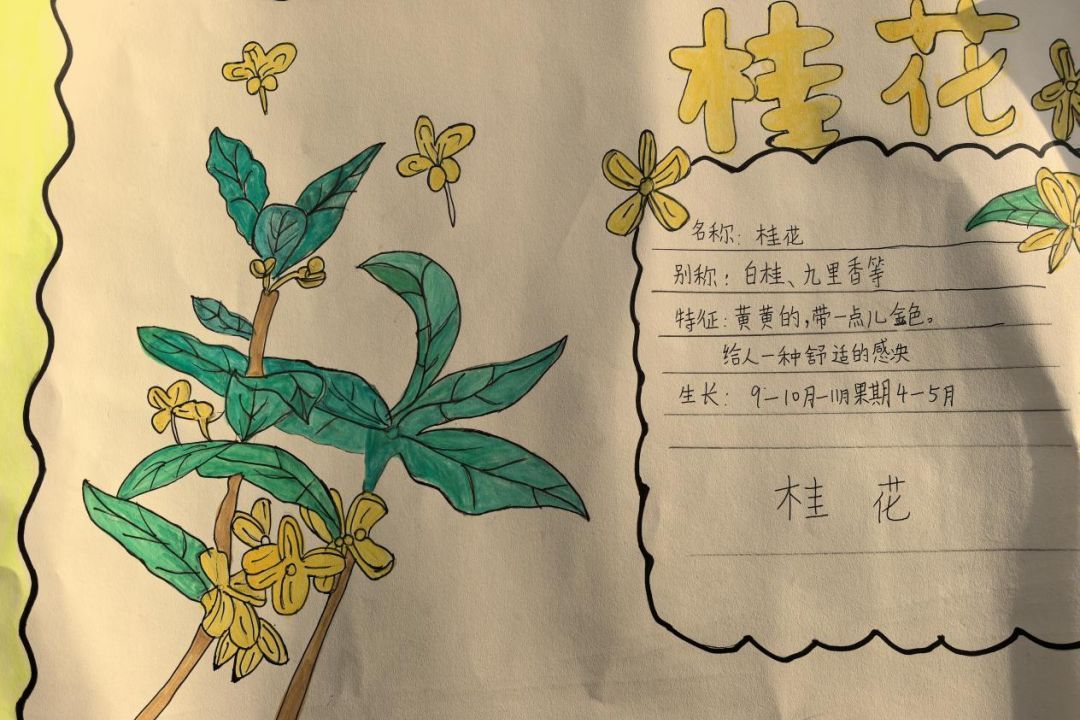 桂花
名称：桂花
别称：白桂、九里香等
特征：黄黄的，带一点儿金色。
给人一种舒适的感
生长：9-10月-11月果期4-5月
桂 花